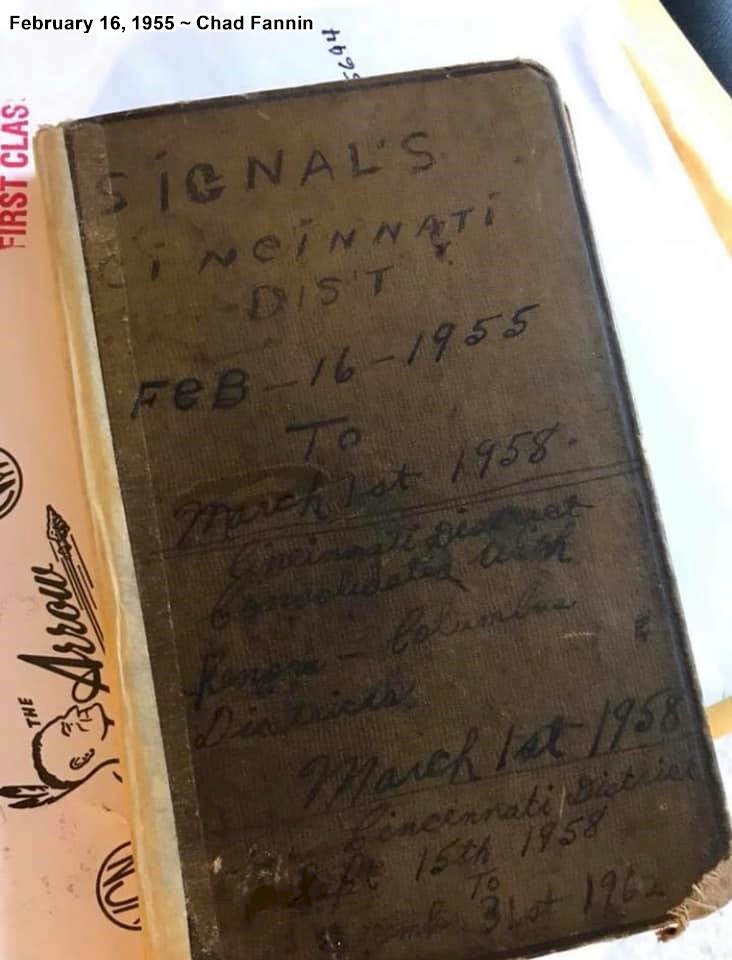 February 16, 1955 ~ Chad Fannin
5694
FIRST CLAS
SIGNAL'S
CINCINNATI
DIST
FEB-16-1955
To
March 1st 1958.
Cincinnati District
Consolidated With
Kenova - Columbus
Districts
March 1st 1958
Cincennati District
Sept 15th 1958
To
31st 1962
THE
Arrow